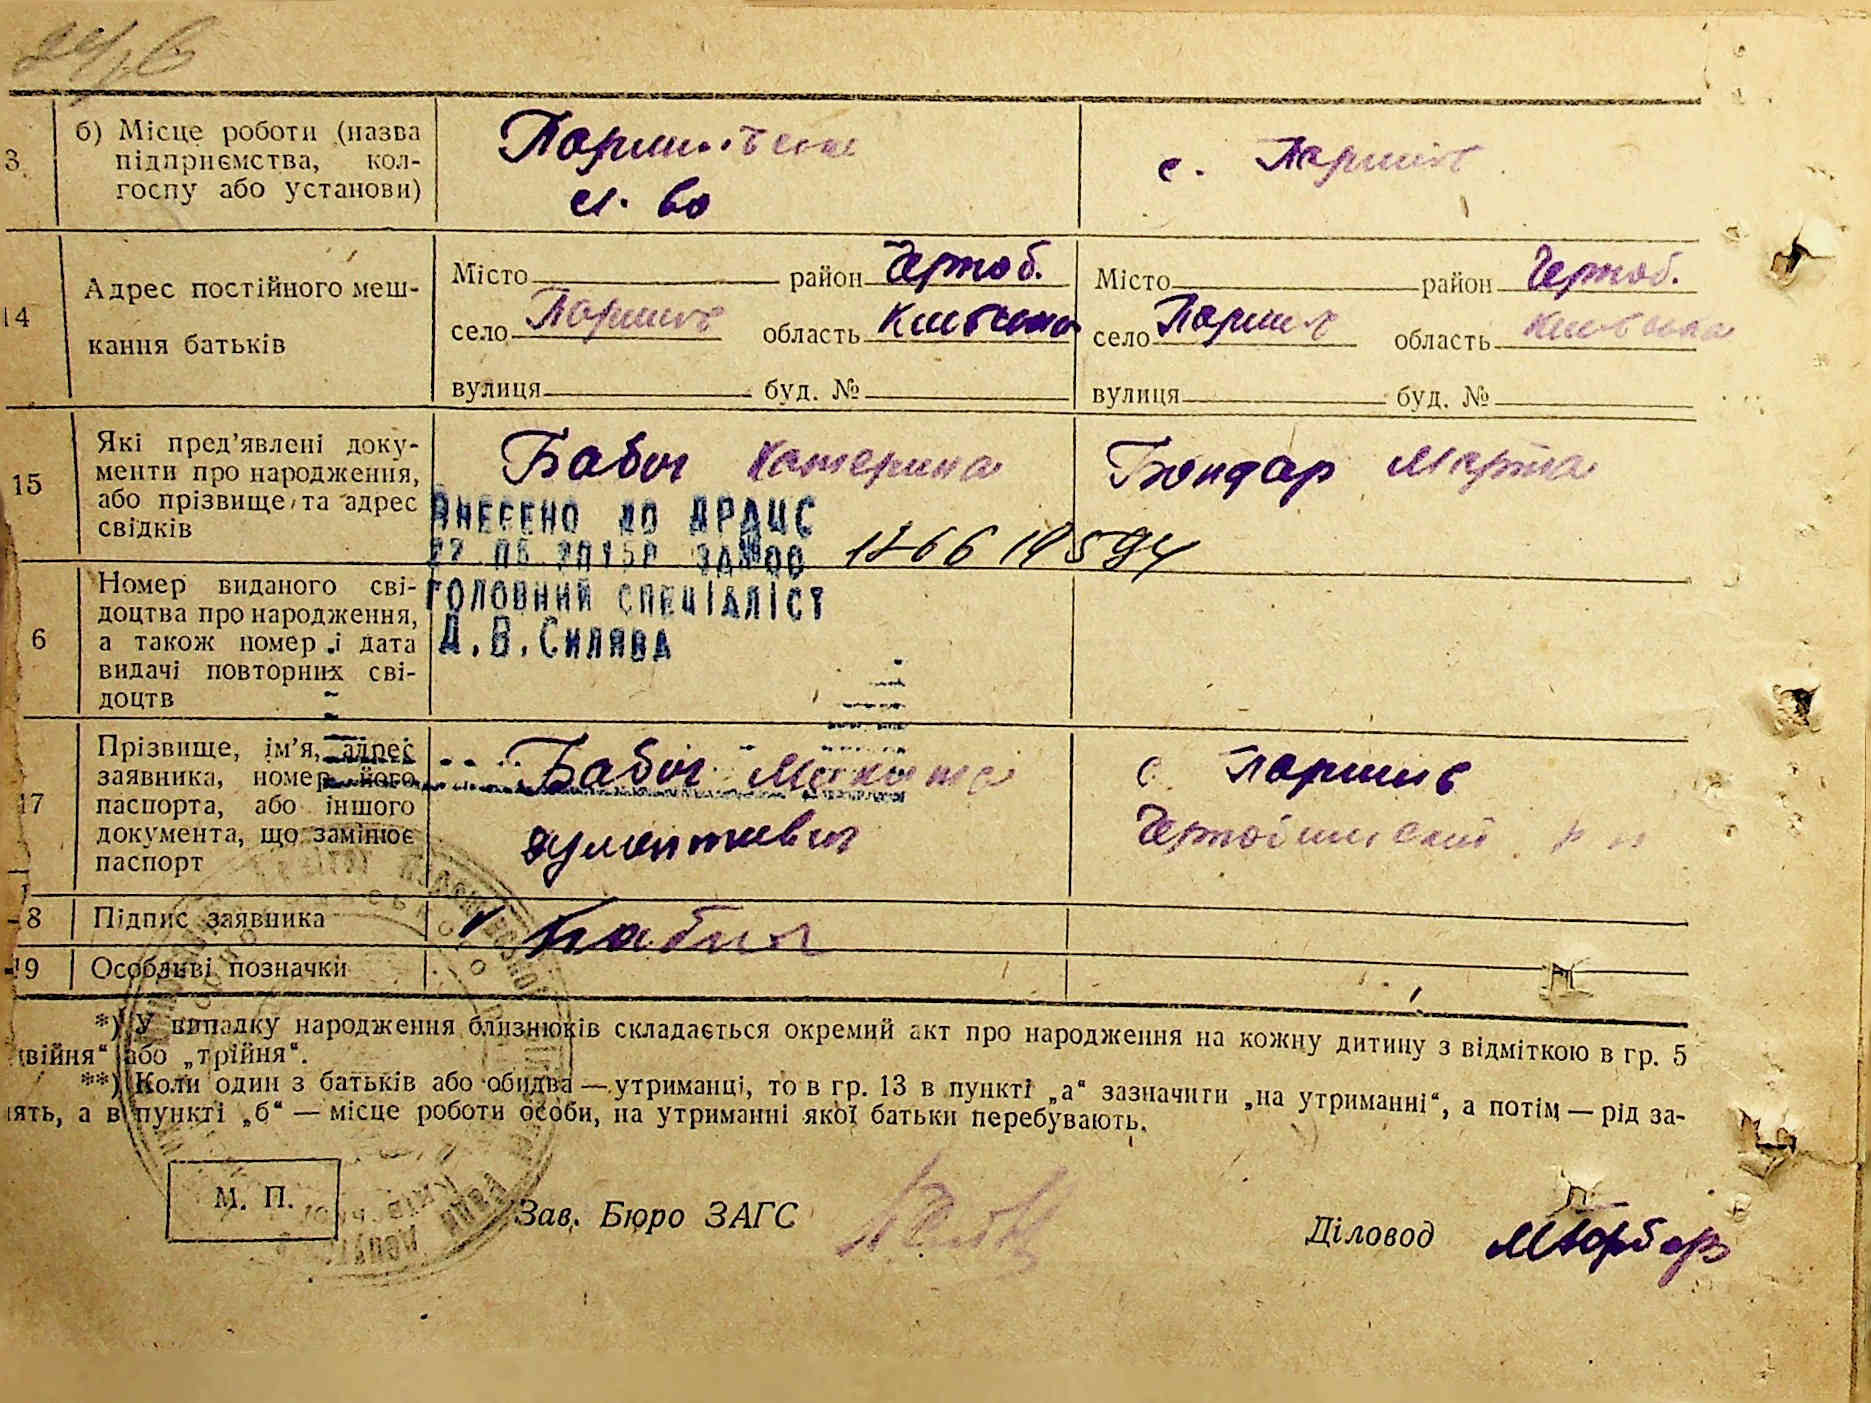 3.
б) Місце роботи (назва
підприємства, кол-
госпу або установи)
с. Паришів
14
Адрес постійного меш-
кання батьків
Місто район Черноб.
село Паришів область Київська
вулиця буд. №
Місто район Черноб.
село Паришів область Київська
вулиця буд. №
15
Які пред’явлені доку-
менти про народження,
або прізвище та адрес
свідків
Бабич Катерина
Бондар Марта
ВНЕСЕНО ДО ДРАЦС
ГОЛОВНИЙ СПЕЦІАЛІСТ
Д.В.Силява
6
Номер виданого сві-
доцтва про народження,
а також номер і дата
видачі повторних сві-
доцтв
17
Прізвище, ім’я, адрес
заявника, номер його
паспорта, або іншого
документа, що замінює
паспорт
Бабич Микита
с Паришів
8
Підпис заявника
Бабич
19
Особливі позначки
*) У випадку народження близнюків складається окремий акт про народження на кожну дитину з відміткою в гр. 5
війня“ або „трійня“.
**) Коли один з батьків або обидва — утриманці, то в гр. 13 в пункті „а“ зазначити „на утриманні“, а потім — рід за-
ять, а в пункті „б“ — місце роботи особи, на утриманні якої батьки перебувають.
М. П.
Зав. Бюро ЗАГС
Діловод